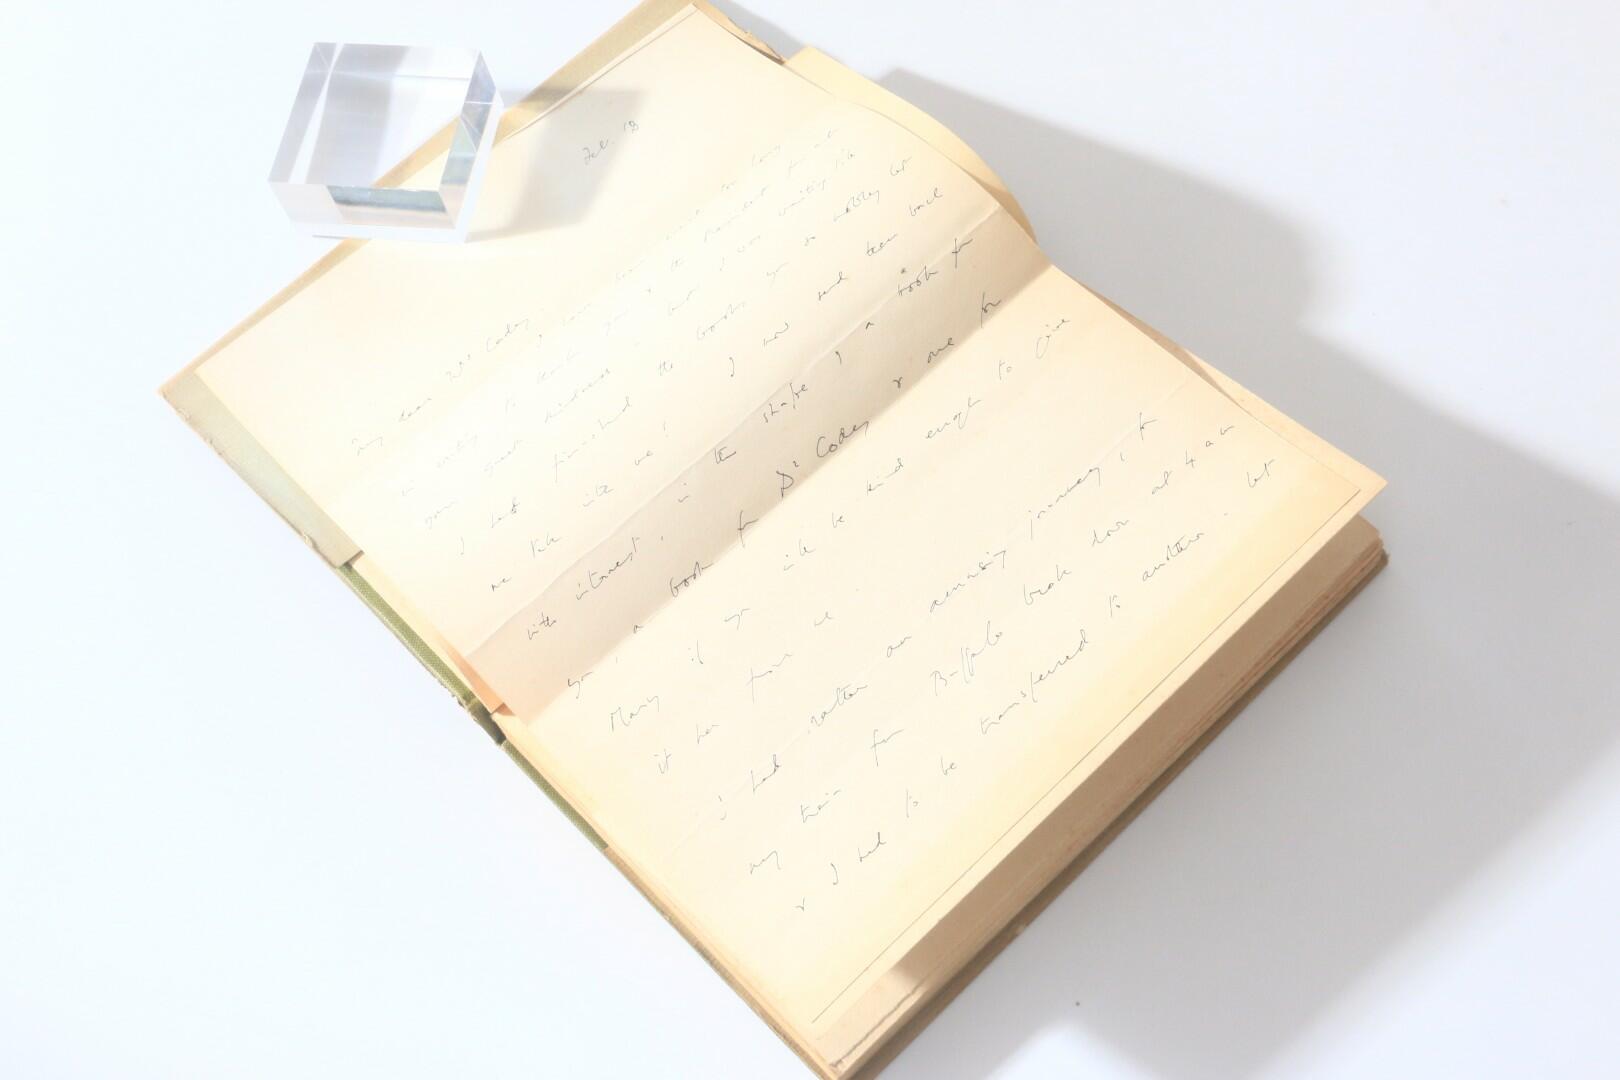 Feb. 18
My dear Mrs Cody,
I have been rather too long
in writing to thank you & the President for all
your great kindness - but I was waiting till
I had finished the books you so nobly let
me take with me! I now send them back
with interest, in the shape of a book for
you, a book for Dr Cody & one for
Mary if you will be kind enough to give
it her from me.
I had rather an amusing journey, for
my train for Buffalo broke down at 4 am
& I had to be transferred to another. but